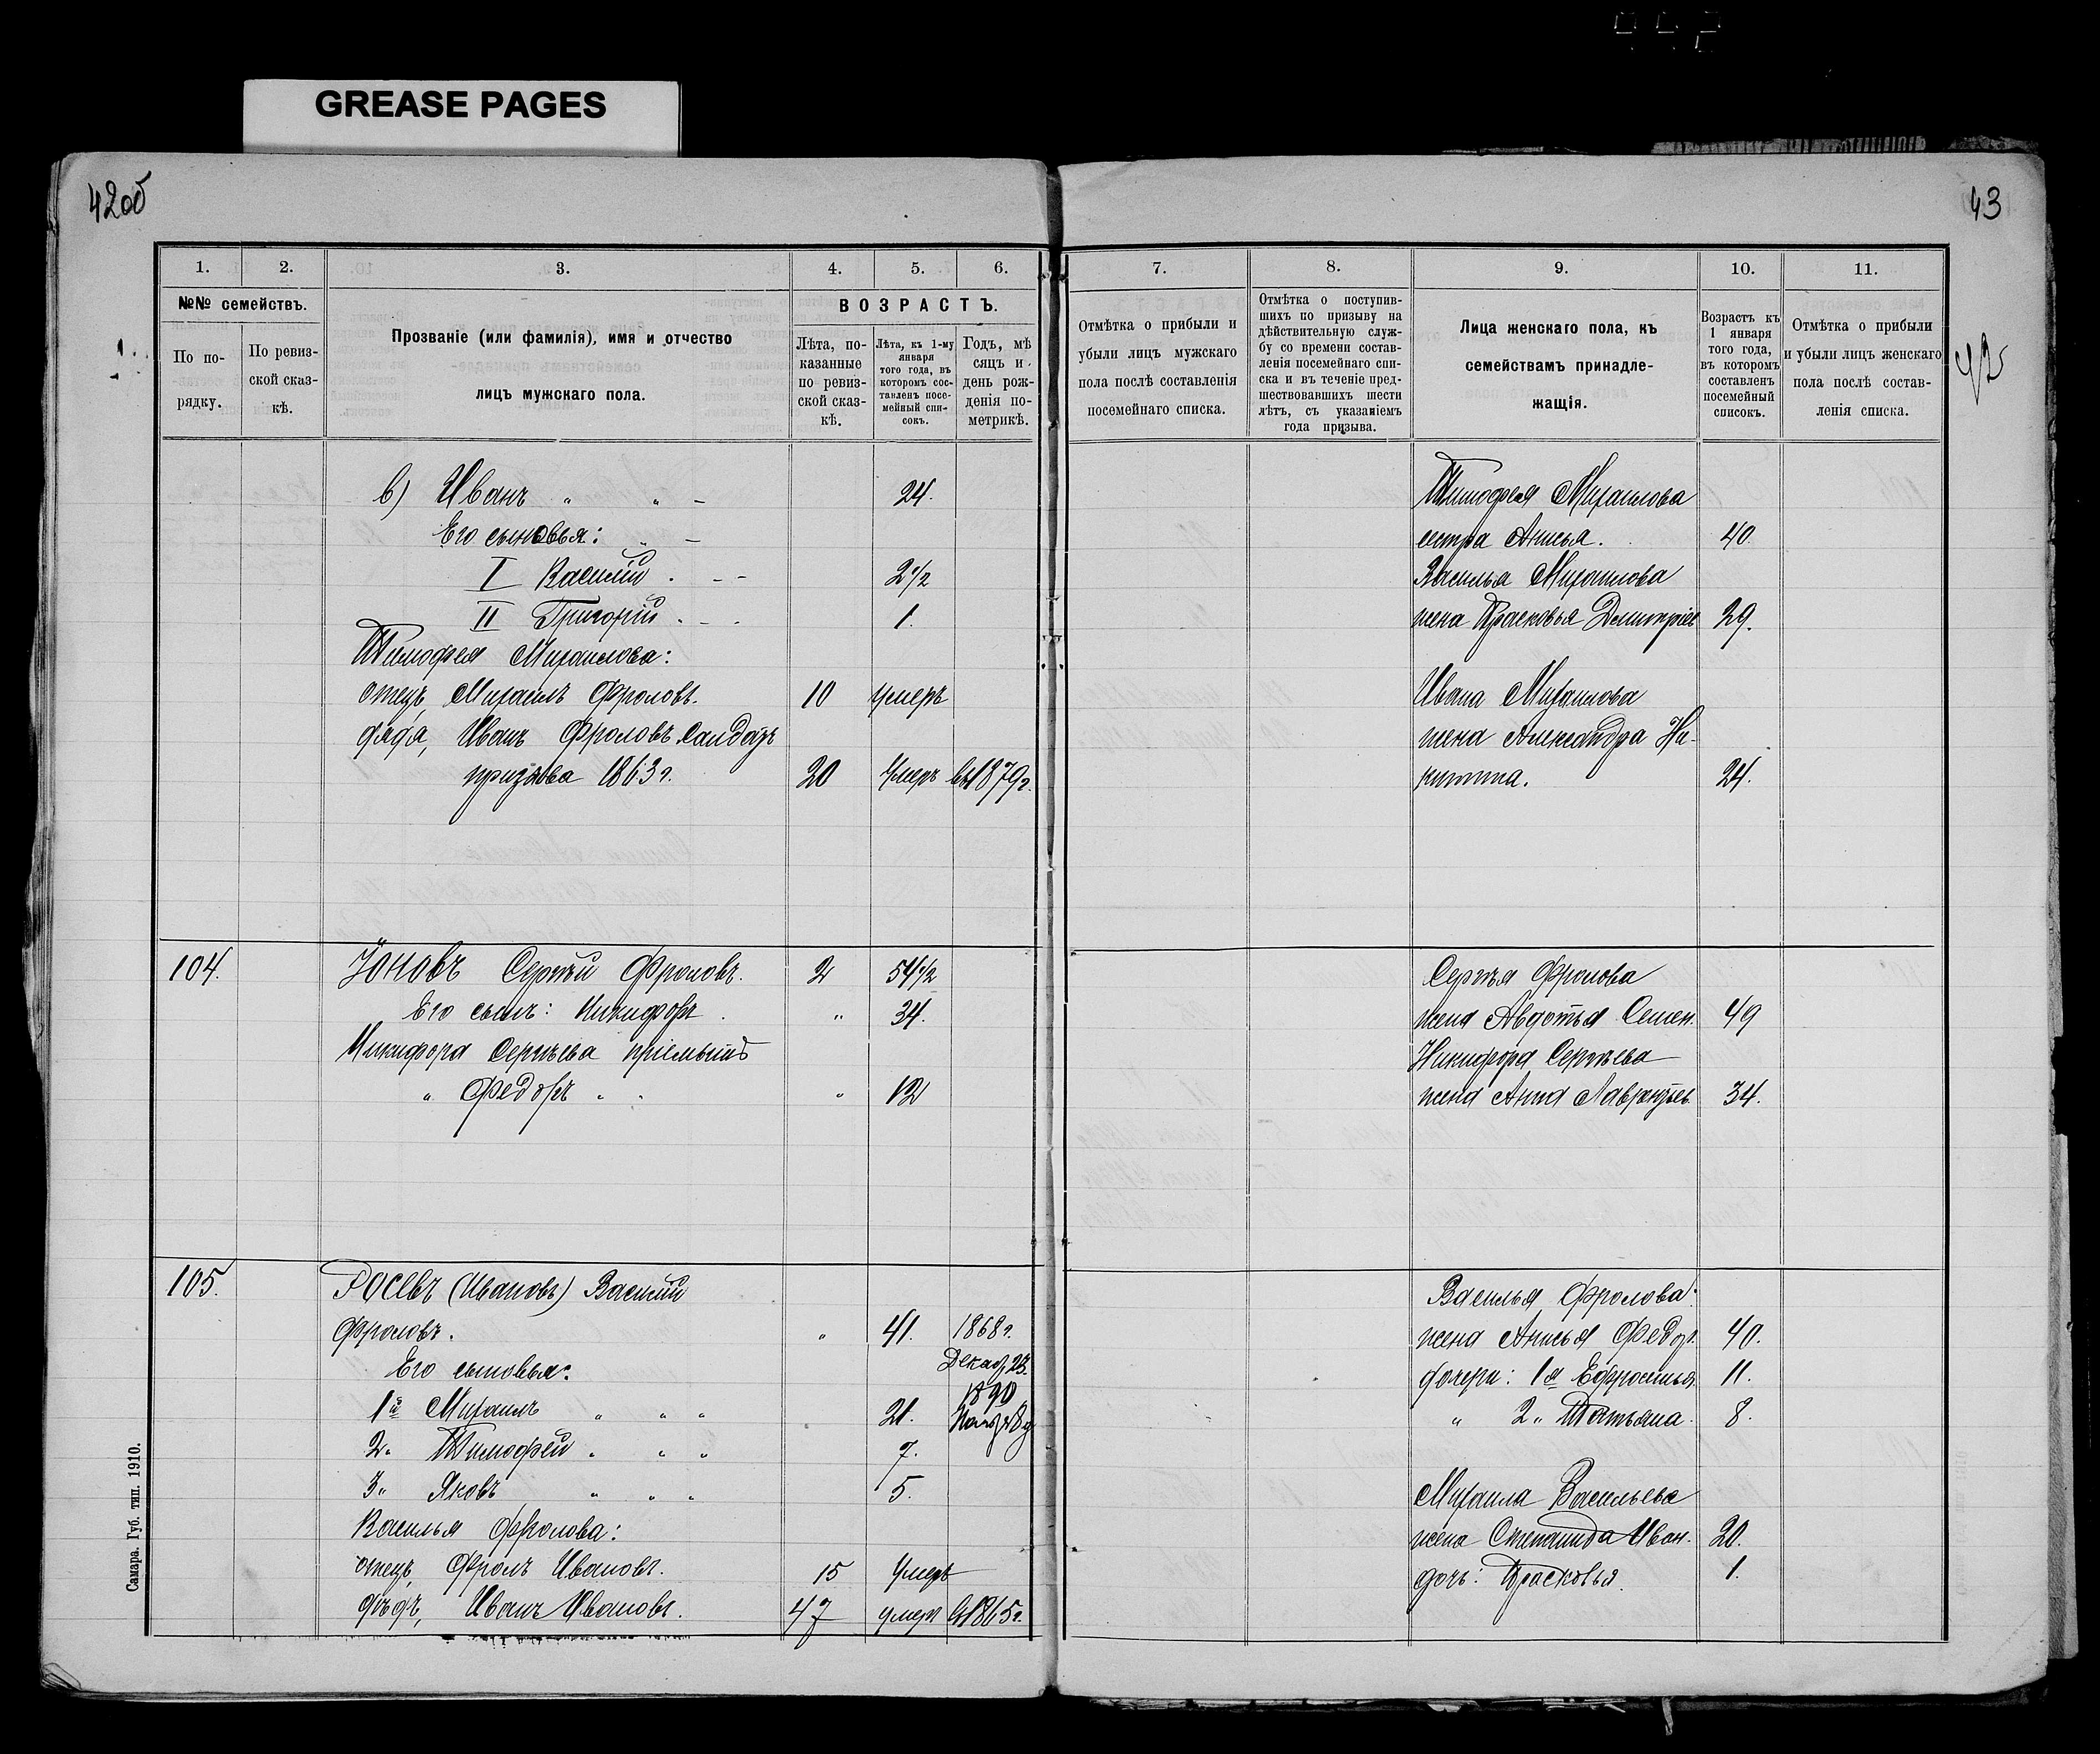 GREASE PAGES
42об
43
42
1.
2.
3.
4.
5.
6.
№№ семействъ.
По по-
рядку.
По ревиз-
ской сказ-
кѣ.
Прозваніе (или фамилія), имя и отчество
лицъ мужскаго пола.
ВОЗРАСТЪ.
Лѣта, по-
казанные
по ревиз-
ской сказ-
кѣ.
Лѣта, къ 1-му
января
того года, въ
которомъ сос-
тавленъ посе-
мейный спи-
сокъ.
Годъ, мѣ
сяцъ и
день рож-
денія по-
метрикѣ.
в) Иванъ " " - 24.
Его сыновья:
I Василій . - - 2 1/2
II Григорій . - - 1.
Тимофея Михаилова:
отецъ, Михаилъ Фроловъ. 10 умеръ
дядя, Иванъ Фроловъ Солдатъ
призыва 1863 г. 20 Умеръ въ 1879 г.
104. Іоновъ Сергѣй Фроловъ. 2 54 1/2
Его сынъ: Никифоръ . " 34.
Никифора Сергѣева пріемышъ
" Федоръ " " " 12
105. Росевъ (Ивановъ) Василій
Фроловъ. " 41. 1868 г.
Декаб. 23.
Его сыновья:
1й Михаилъ " " " 21. 1890
Нояб. 8 д
2" Тимофей " " " 7.
3" Яковъ " " " 5.
Василья Фролова:
отецъ, Фролъ Ивановъ. 15 Умеръ
дѣдъ, Иванъ Ивановъ. 47 умеръ въ 1865 г.
Самара. Губ. тип. 1910.
7.
8.
9.
10.
11.
Отмѣтка о прибыли и
убыли лицъ мужскаго
пола послѣ составленія
посемейнаго списка.
Отмѣтка о поступив-
шихъ по призыву на
дѣйствительную служ-
бу со времени состав-
ленія посемейнаго спи-
ска и въ теченіе пред-
шествовавшихъ шести
лѣтъ, съ указаніемъ
года призыва.
Лица женскаго пола, къ
семействамъ принадле-
жащія.
Возрастъ къ
1 января
того года,
въ которомъ
составленъ
посемейный
списокъ.
Отмѣтка о прибыли
и убыли лицъ женскаго
пола послѣ состав-
ленія списка.
Тимофея Михаилова
сестра Анисья. 40.
Василья Михаилова
жена Прасковья Дмитріев 29.
Ивана Михаилова
жена Александра Ни-
китина. 24.
Сергѣя Фролова
жена Авдотья Семен. 49
Никифора Сергѣева
жена Анна Лаврентьев. 34.
Василья Фролова:
жена Анисья Федор. 40.
дочери: 1я Ефросинья 11.
" 2" Татьяна. 8.
Михаила Васильева
жена Степанида Иван. 20.
дочь: Прасковья. 1.